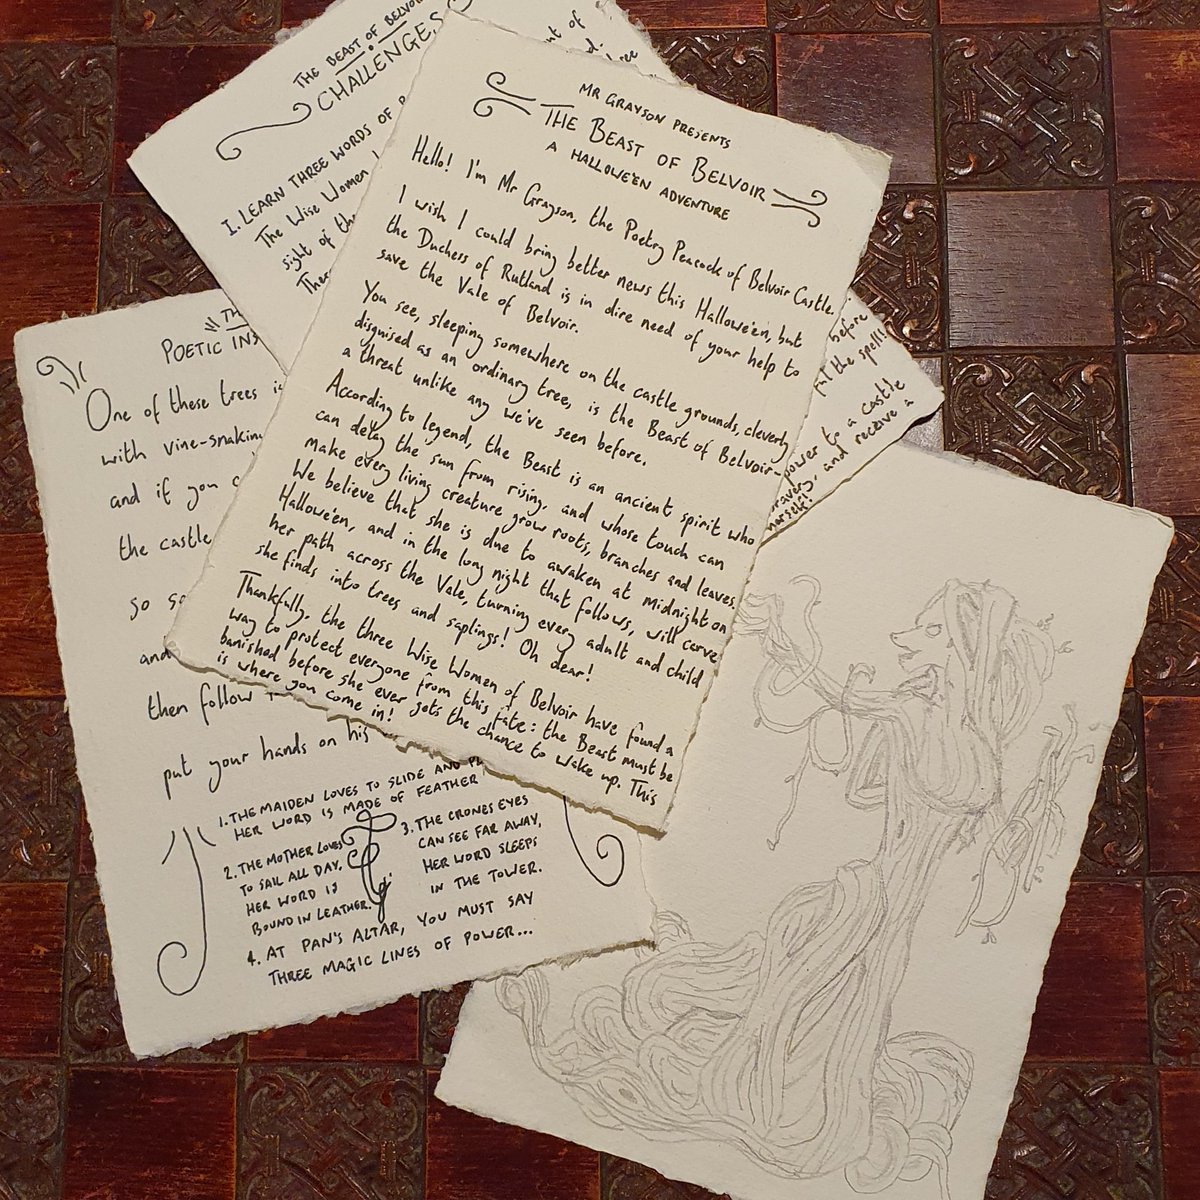 THE BEAST OF BELVOIR
CHALLENGES
1. LEARN THREE WORDS OF
The Wise Women
sight of the
MR GRAYSON PRESENTS
THE BEAST OF BELVOIR
A HALLOWE'EN ADVENTURE
Hello! I'm Mr Grayson, the Poetry Peacock of Belvoir Castle.
I wish I could bring better news this Hallowe'en, but
the Duchess of Rutland is in dire need of your help to
save the Vale of Belvoir.
You see, sleeping somewhere on the castle grounds, cleverly
disguised as an ordinary tree, is the Beast of Belvoir-
a threat unlike any we've seen before.
According to legend, the Beast is an ancient spirit who
can delay the sun from rising, and whose touch can
make every living creature grow roots, branches and leaves.
We believe that she is due to awaken at midnight on
Hallowe'en, and in the long night that follows, will carve
her path across the Vale, turning every adult and child
she finds into trees and saplings! Oh dear!
Thankfully, the three Wise Women of Belvoir have found a
way to protect everyone from this fate: the Beast must be
banished before she ever gets the chance to wake up. This
is where you come in!
before
the spell!
power to a castle
bravery, and receive a
herself!
POETIC INS
One of these trees is
with vine-snaking
and if you c
the castle
so so
and
then follow
put your hands on his
1. THE MAIDEN LOVES TO SLIDE AND
HER WORD IS MADE OF FEATHER
2. THE MOTHER LOVES
TO SAIL ALL DAY,
HER WORD IS
BOUND IN LEATHER.
3. THE CRONES EYES
CAN SEE FAR AWAY,
HER WORD SLEEPS
IN THE TOWER.
4. AT PAN'S ALTAR, YOU MUST SAY
THREE MAGIC LINES OF POWER...